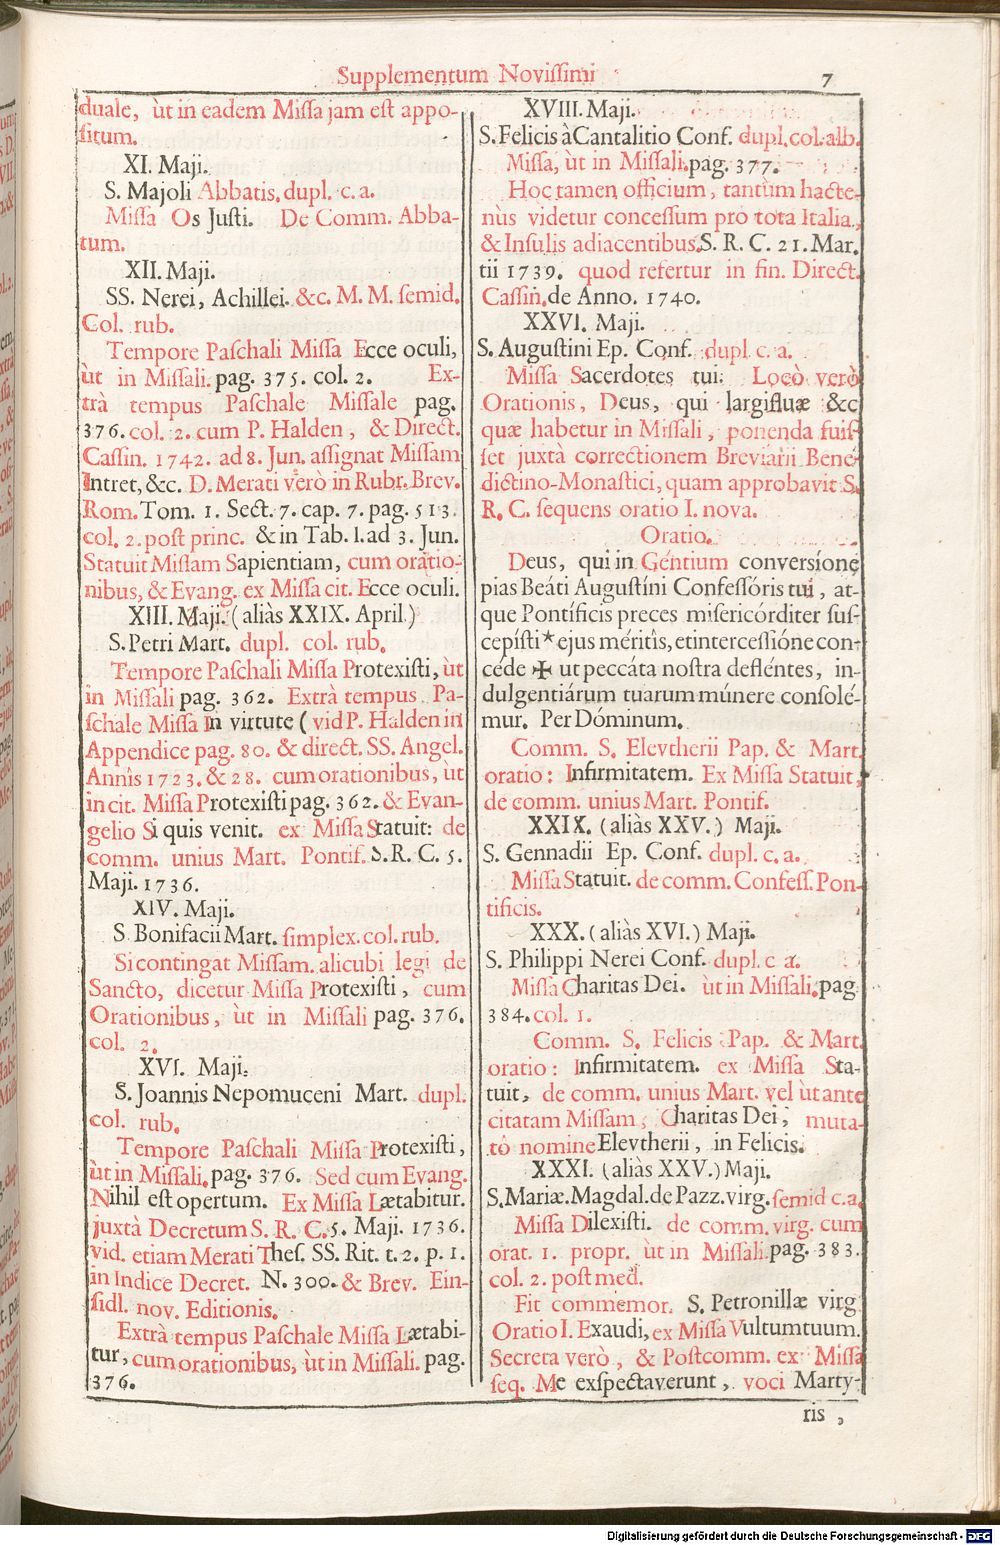 Supplementum Novissimi 7
duale, ùt in eadem Missa jam est appo-
situm.
XI. Maji.
S. Majoli Abbatis, dupl. c. a.
Missa Os Justi. De Comm. Abba-
tum.
XII. Maji.
SS. Nerei, Achillei. &c. M. M. semid.
Col. rub.
Tempore Paschali Missa Ecce oculi,
ùt in Missali. pag. 375. col. 2. Ex-
trà tempus Paschale Missale pag.
376. col. 2. cum P. Halden, & Direct.
Cassin. 1742. ad 8. Jun. assignat Missam
Intret, &c. D. Merati verò in Rubr. Brev.
Rom. Tom. 1. Sect. 7. cap. 7. pag. 513.
col. 2. post princ. & in Tab. l. ad 3. Jun.
Statuit Missam Sapientiam, cum oratio-
nibus, & Evang. ex Missa cit. Ecce oculi.
XIII. Maji. (aliàs XXIX. April.)
S. Petri Mart. dupl. col. rub.
Tempore Paschali Missa Protexisti, ùt
in Missali pag. 362. Extrà tempus Pa-
schale Missa In virtute (vid P. Halden in
Appendice pag. 80. & direct. SS. Angel.
Annis 1723. & 28. cum orationibus, ùt
in cit. Missa Protexisti pag. 362. & Evan-
gelio Si quis venit. ex Missa Statuit: de
comm. unius Mart. Pontif. S. R. C. 5.
Maji. 1736.
XIV. Maji.
S. Bonifacii Mart. simplex. col. rub.
Si contingat Missam. alicubi legi de
Sancto, dicetur Missa Protexisti, cum
Orationibus, ùt in Missali pag. 376.
col. 2.
XVI. Maji.
S. Joannis Nepomuceni Mart. dupl.
col. rub.
Tempore Paschali Missa Protexisti,
ùt in Missali, pag. 376. Sed cum Evang.
Nihil est opertum. Ex Missa Lætabitur.
juxtà Decretum S. R. C. 5. Maji. 1736.
vid. etiam Merati Thes. SS. Rit. t. 2. p. 1.
in Indice Decret. N. 300. & Brev. Ein-
sidl. nov. Editionis.
Extrà tempus Paschale Missa Lætabi-
tur, cum orationibus, ùt in Missali. pag.
376.
XVIII. Maji.
S. Felicis à Cantalitio Conf. dupl. col. alb.
Missa, ùt in Missali. pag. 377.
Hoc tamen officium, tantùm hacte-
nùs videtur concessum pro tota Italia,
& Insulis adiacentibus. S. R. C. 21. Mar.
tii 1739. quod refertur in fin. Direct.
Cassin. de Anno. 1740.
XXVI. Maji.
S. Augustini Ep. Conf. dupl. c. a.
Missa Sacerdotes tui: Locò verò
Orationis, Deus, qui largifluæ &c
quæ habetur in Missali, ponenda fuis-
set juxtà correctionem Breviarii Bene-
dictino-Monastici, quam approbavit S.
R. C. sequens oratio I. nova.
Oratio.
Deus, qui in Géntium conversióne
pias Beáti Augustíni Confessóris tui, at-
que Pontíficis preces misericórditer sus-
cepísti * ejus méritis, et intercessióne con-
céde ✠ ut peccáta nostra defléntes, in-
dulgentiárum tuarum múnere consolé-
mur. Per Dóminum.
Comm. S. Elevtherii Pap. & Mart.
oratio: Infirmitatem. Ex Missa Statuit,
de comm. unius Mart. Pontif.
XXIX. (aliàs XXV.) Maji.
S. Gennadii Ep. Conf. dupl. c. a.
Missa Statuit. de comm. Confess. Pon-
tificis.
XXX. (aliàs XVI.) Maji.
S. Philippi Nerei Conf. dupl. c a.
Missa Charitas Dei. ùt in Missali. pag
384. col. 1.
Comm. S. Felicis Pap. & Mart.
oratio: Infirmitatem. ex Missa Sta-
tuit, de comm. unius Mart. vel ùt ante
citatam Missam, Charitas Dei, muta-
tò nomine Elevtherii, in Felicis.
XXXI. (aliàs XXV.) Maji.
S. Mariæ. Magdal. de Pazz. virg. semid c. a.
Missa Dilexisti. de comm. virg. cum
orat. 1. propr. ùt in Missali. pag. 383.
col. 2. post med.
Fit commemor. S. Petronillæ virg
Oratio I. Exaudi, ex Missa Vultum tuum.
Secreta verò, & Postcomm. ex Missa
seq. Me exspectaverunt, voci Marty-
ris,
Digitalisierung gefördert durch die Deutsche Forschungsgemeinschaft - DFG